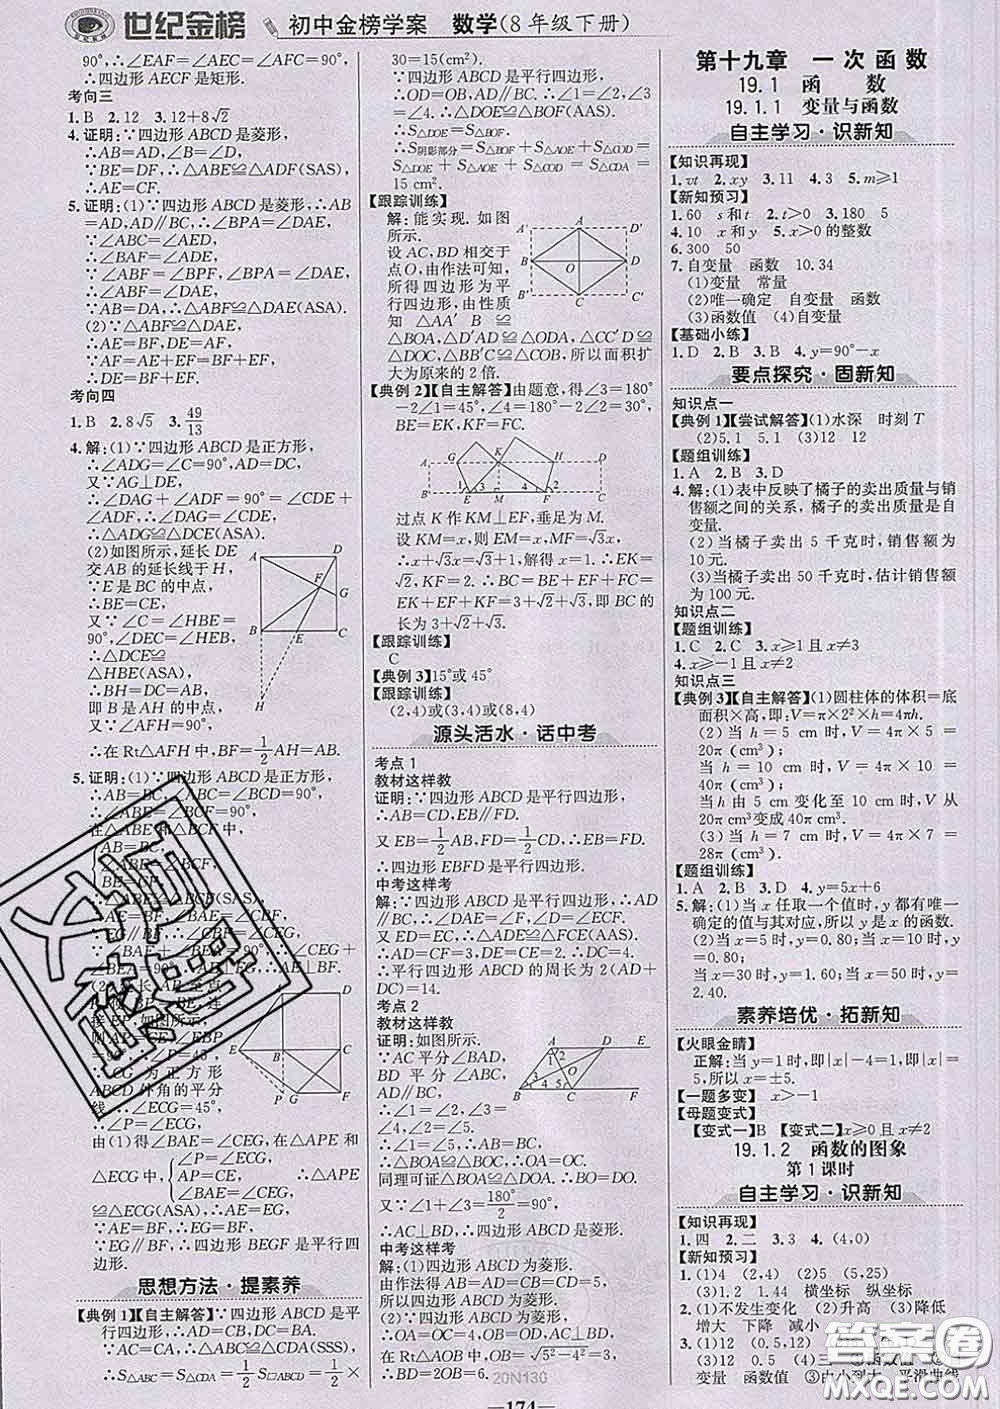 世纪金榜 初中金榜学案 数学(8年级下册)
90°,∴∠EAF=∠AEC=∠AFC=90°,
∴四边形AECF是矩形.
考向三
1.B 2.12 3.12+8√2
4.证明:∵四边形ABCD是菱形,
∴AB=AD,∠B=∠D,
∵BE=DF,∴△ABE≌△ADF(SAS),
∴AE=CF.
5.证明:(1)∵四边形ABCD是菱形,∴AB
=AD,AD∥BC,∴∠BPA=∠DAE,
∵∠ABC=∠AED,
∴∠BAF=∠ADE,
∵∠ABF=∠BPF,∠BPA=∠DAE,
∴∠ABF=∠DAE,
∵AB=DA,∴△ABF≌△DAE(ASA).
(2)∵△ABF≌△DAE,
∴AE=BF,DE=AF,
∵AF=AE+EF=BF+EF,
∴DE=BF+EF.
考向四
1.B 2.8√5 3.49/13
4.解:(1)∵四边形ABCD是正方形,
∴∠ADG=∠C=90°,AD=DC,
又∵AG⊥DE,
∴∠DAG+∠ADF=90°=∠CDE+
∠ADF,∴∠DAG=∠CDE,
∴△ADG≌△DCE(ASA).
(2)如图所示,延长DE
交AB的延长线于H,
∵E是BC的中点,
∴BE=CE,
又∵∠C=∠HBE=
90°,∠DEC=∠HEB,
∴△DCE≌
△HBE(ASA),
∴BH=DC=AB,
即B是AH的中点,
又∵∠AFH=90°,
∴在Rt△AFH中,BF=1/2AH=AB.
5.证明:(1)∵四边形ABCD是正方形,
∴AB=BC,∠ABC=∠BCD=90°,
∴∠ABE=∠BCF=90°,
在△ABE和△BCF中,
AB=BC,
∠ABE=∠BCF,
BE=CF,
∴∠CEG+
形ABCD外角的平分
线,∴∠ECG=45°,
∴∠P=∠ECG,
由(1)得∠BAE=∠CEG,在△APE和
△ECG中,
∠P=∠ECG,
AP=CE,
∠BAE=∠CEG,
∴△APE≌
△ECG(ASA),∴AE=EG,
∵AE=BF,∴EG=BF,
∵EG∥BF,∴四边形BEGF是平行四
边形.
思想方法·提素养
【典例1】【自主解答】∵四边形ABCD是平
行四边形,∴AD=CB,AB=CD,
∵AC=CA,∴△ABC≌△CDA(SSS),
∴S△ABC=S△CDA=1/2S□ABCD=1/2×
30=15(cm²).
∵四边形ABCD是平行四边形,
∴OB=OD,∴∠1=∠2,∠3=
∠4,∴△DOE≌△BOF(ASA),
∴S△DOE=S△BOF,
∴S阴影部分=S△BOF+S△AOE+S△COD=
S△DOE+S△AOE+S△COD=S△CDA=
15 cm².
【跟踪训练】
解:能实现.如图
所示.
设AC,BD相交于
点O,由作法可知,
所得四边形为平
行四边形,由性质
知 △AA′B≌
△BOA,△D′AD≌△ODA,△CC′D≌
△DOC,△BB′C≌△COB,所以面积扩
大为原来的2倍.
【典例2】【自主解答】由题意,得∠3=180°
-2∠1=45°,∠4=180°-2∠2=30°,
BE=EK,KF=FC.
过点K作KM⊥EF,垂足为M.
设KM=x,则EM=x,MF=√3x,
∴x+√3x=√3+1,解得x=1.∴EK=
√2,KF=2.∴BC=BE+EF+FC=
EK+EF+KF=3+√2+√3,即BC的长
为3+√2+√3.
【跟踪训练】
C
【典例3】15°或45°
【跟踪训练】
(2,4)或(3,4)或(8,4)
源头活水·话中考
考点1
教材这样教
证明:∵四边形ABCD是平行四边形,
∴AB=CD,EB∥FD.
又EB=1/2AB,FD=1/2CD,∴EB=FD.
∴四边形EBFD是平行四边形.
中考这样考
解:∵四边形ABCD是平行四边形,
∴AD∥BC,∴∠D=∠FCE,
又ED=EC,∴△ADE≌△FCE(AAS),
∴AD=CF=3,DE=CE=2.∴DC=4,
∴平行四边形ABCD的周长为2(AD+
DC)=14.
考点2
教材这样教
证明:如图所示
∵AC平分∠BAD,
BD平分∠ABC,
AD∥BC,
∴∠1=∠2=∠5,
∠3=∠4,
∵∠1=∠5,∴AB=BC,
∴△BOA≌△BOC,∴OA=OC,
同理可证,△BOA≌△DOA,OB=OD,
又∵∠1+∠3=180°/2=90°,
∴AC⊥BD,∴四边形ABCD是菱形.
中考这样考
解:(1)四边形ABCD为菱形.
由作法得AB=AD=CB=CD=5,
所以四边形ABCD为菱形.
(2)∵四边形ABCD为菱形,
∴OA=OC=4,OB=OD,AC⊥BD,
在Rt△AOB中,OB=√(5²-4²)=3,
∴BD=2OB=6.
第十九章 一次函数
19.1 函数
19.1.1 变量与函数
自主学习·识新知
【知识再现】
1.vt 2.xy 3.11 4.3 5.m≥1
【新知预习】
1.60 s和t 2.t>0 3.180 5
4.10 x和y 5.x>0的整数
6.300 50
7.自变量 函数 10.34
(1)变量 常量
(2)唯一确定 自变量 函数
(3)函数值 (4)自变量
【基础小练】
1.D 2.B 3.B 4.y=90°-x
要点探究·固新知
知识点一
【典例1】【尝试解答】(1)水深 时刻T
(2)5.1 5.1 (3)12 12
【题组训练】
1.A 2.B 3.D
4.解:(1)表中反映了橘子的卖出质量与销
售额之间的关系,橘子的卖出质量是自
变量.
(2)当橘子卖出5千克时,销售额为
10元.
(3)当橘子卖出50千克时,估计销售额
为100元.
知识点二
【题组训练】
1.C 2.C 3.x≥1且x≠3
4.x≥-1且x≠2
知识点三
【典例3】【自主解答】(1)圆柱体的体积=底
面积×高,即:V=π×2²×h=4πh.
(2)当h=5 cm时,V=4π×5=
20π(cm³);
当h=10 cm时,V=4π×10=
40π(cm³);
当h由5 cm变化至10 cm时,V从
20π cm³变成40π cm³.
(3)当h=7 cm时,V=4π×7=
28π(cm³).
【题组训练】
1.A 2.B 3.A 4.y=5x+6
5.解:(1)当x任取一个值时,y都有唯一
确定的值与其对应,所以y是x的函数.
(2)当x=5时,y=0.80;当x=10时,
y=0.80;
当x=30时,y=1.60;当x=50时,y=
2.40.
素养培优·拓新知
【火眼金睛】
正解:当y=1时,即|x|-4=1,即|x|=
5,所以x=±5.
【一题多变】 x>-1
【母题变式】
【变式一】B 【变式二】x≥0且x≠2
19.1.2 函数的图象
第1课时
自主学习·识新知
【知识再现】
1.四 2.二 3.3 4.(4,0)
【新知预习】
1.(1)4 (2,4) (2)5 (5,25)
(3)3.14 12 横坐标 纵坐标
2.(1)不发生变化 (2)升高 (3)降低
增大 下降 减小
3.(1)12
(3)12 0.5 (4)三
变量 函数值
答案圈
MXQE.COM
20N130
—174—